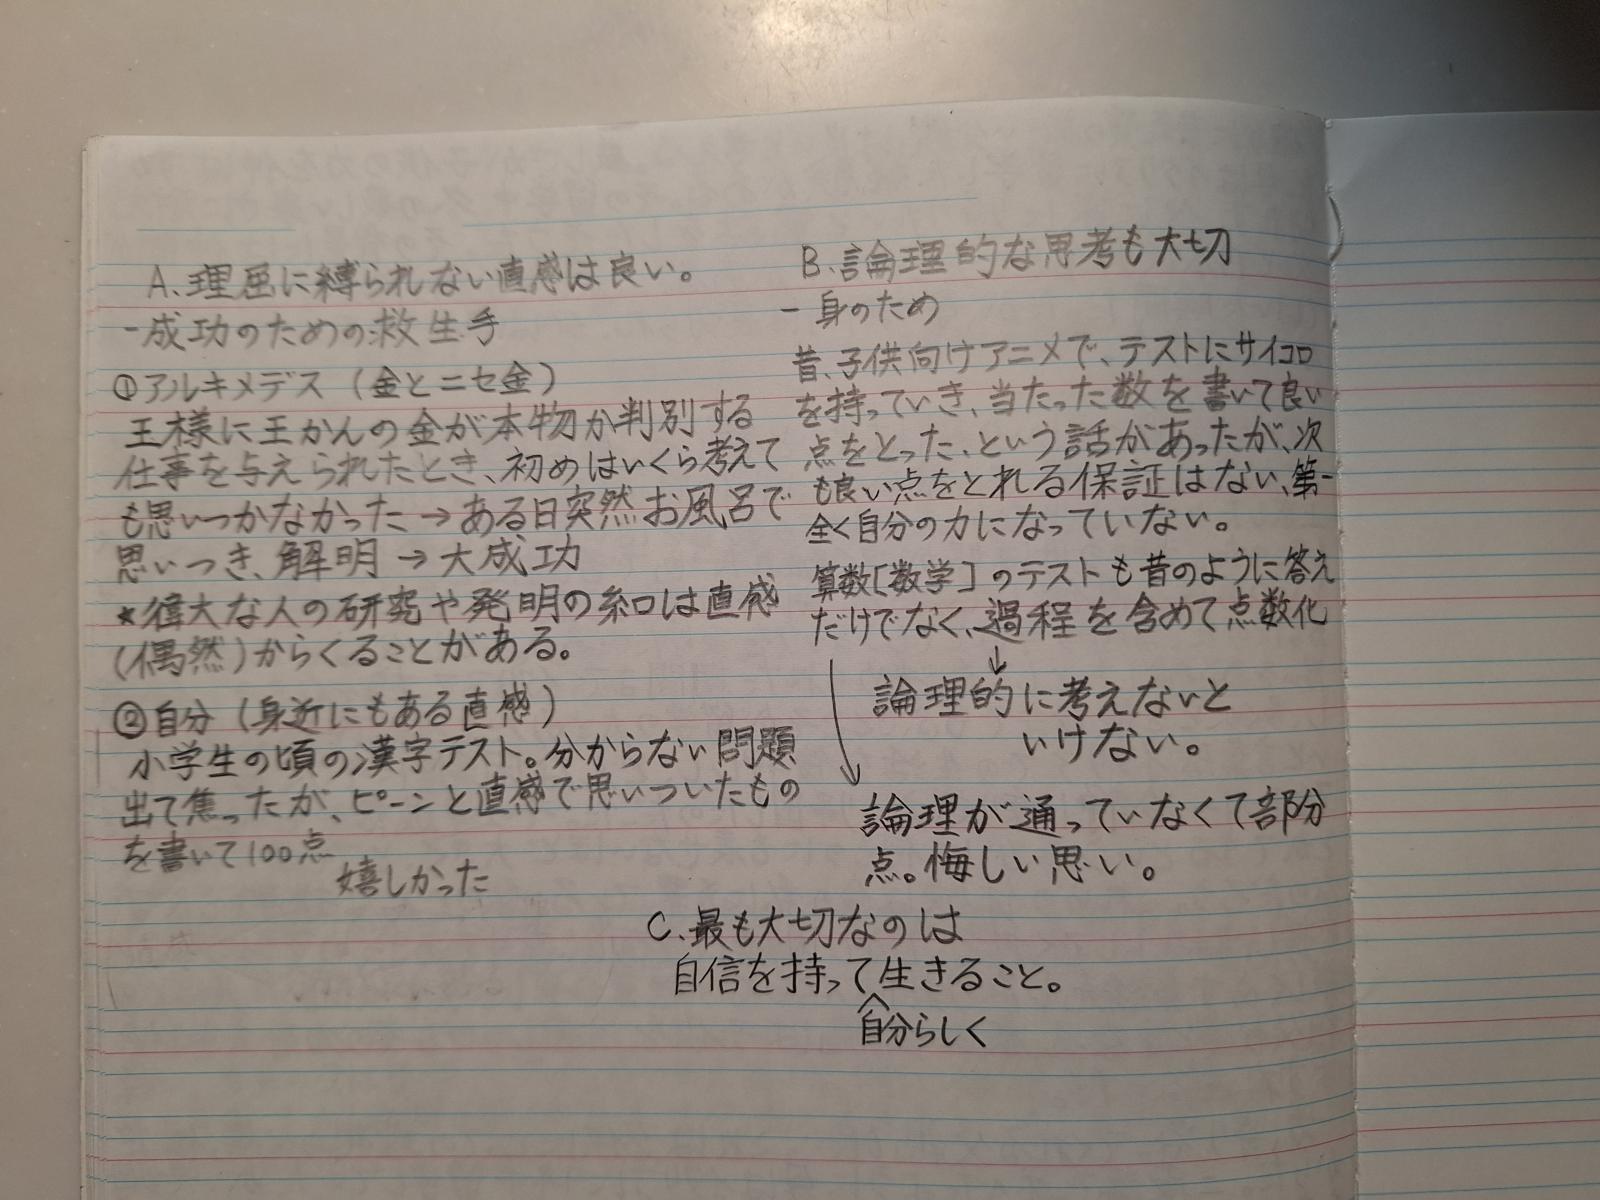 A.理屈に縛られない直感は良い。
-成功のための救生手
①アルキメデス(金とニセ金)
王様に王かんの金が本物か判別する
仕事を与えられたとき、初めはいくら考えて
も思いつかなかった→ある日突然お風呂で
思いつき、解明→大成功
★偉大な人の研究や発明の糸口は直感
(偶然)からくることがある。
②自分(身近にもある直感)
小学生の頃の漢字テスト。分からない問題
出て焦ったが、ピーンと直感で思いついたもの
を書いて100点
嬉しかった
B.論理的な思考も大切
-身のため
昔、子供向けアニメで、テストにサイコロ
を持っていき、当たった数を書いて良い
点をとった、という話があったが、次
も良い点をとれる保証はない、第一
全く自分の力になっていない。
算数[数学]のテストも昔のように答え
だけでなく、過程を含めて点数化
↓
論理的に考えないと
いけない。
論理が通っていなくて部分
点。悔しい思い。
C.最も大切なのは
自信を持って生きること。
自分らしく